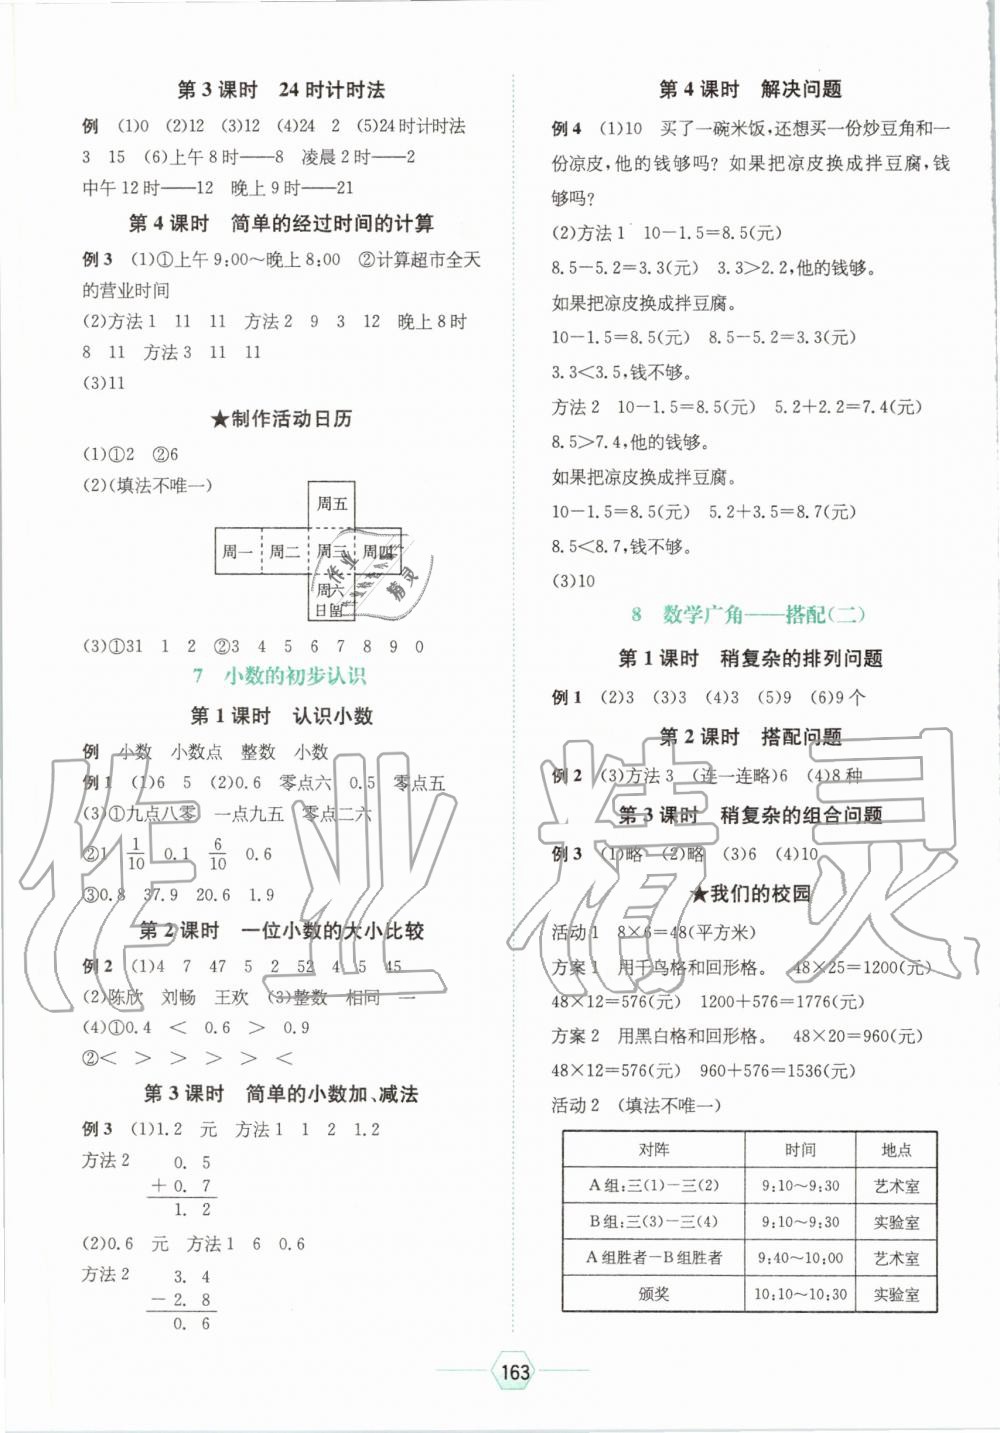 第3课时 24时计时法
例 (1)0 (2)12 (3)12 (4)24 2 (5)24时计时法
3 15 (6)上午8时——8 凌晨2时——2
中午12时——12 晚上9时——21
第4课时 简单的经过时间的计算
例3 (1)①上午9:00～晚上8:00 ②计算超市全天
的营业时间
(2)方法1 11 11 方法2 9 3 12 晚上8时
8 11 方法3 11 11
(3)11
★制作活动日历
(1)①2 ②6
(2)(填法不唯一)
周五
周一 周二 周三 周四
周六
日
(3)①31 1 2 ②3 4 5 6 7 8 9 0
7 小数的初步认识
第1课时 认识小数
例 小数 小数点 整数 小数
例1 (1)6 5 (2)0.6 零点六 0.5 零点五
(3)①九点八零 一点九五 零点二六
②1 1/10 0.1 6/10 0.6
③0.8 37.9 20.6 1.9
第2课时 一位小数的大小比较
例2 (1)4 7 47 5 2 52 4 5 45
(2)陈欣 刘畅 王欢 (3)整数 相同 一
(4)①0.4 < 0.6 > 0.9
②< > > > > <
第3课时 简单的小数加、减法
例3 (1)1.2 元 方法1 1 2 1.2
方法2 0. 5
+ 0. 7
1. 2
(2)0.6 元 方法1 6 0.6
方法2 3. 4
- 2. 8
0. 6
第4课时 解决问题
例4 (1)10 买了一碗米饭,还想买一份炒豆角和一
份凉皮,他的钱够吗? 如果把凉皮换成拌豆腐,钱
够吗?
(2)方法1 10-1.5=8.5(元)
8.5-5.2=3.3(元) 3.3>2.2,他的钱够。
如果把凉皮换成拌豆腐。
10-1.5=8.5(元) 8.5-5.2=3.3(元)
3.3<3.5,钱不够。
方法2 10-1.5=8.5(元) 5.2+2.2=7.4(元)
8.5>7.4,他的钱够。
如果把凉皮换成拌豆腐。
10-1.5=8.5(元) 5.2+3.5=8.7(元)
8.5<8.7,钱不够。
(3)10
8 数学广角——搭配(二)
第1课时 稍复杂的排列问题
例1 (2)3 (3)3 (4)3 (5)9 (6)9个
第2课时 搭配问题
例2 (3)方法3 (连一连略)6 (4)8种
第3课时 稍复杂的组合问题
例3 (1)略 (2)略 (3)6 (4)10
★我们的校园
活动1 8×6=48(平方米)
方案1 用千鸟格和回形格。 48×25=1200(元)
48×12=576(元) 1200+576=1776(元)
方案2 用黑白格和回形格。 48×20=960(元)
48×12=576(元) 960+576=1536(元)
活动2 (填法不唯一)
对阵 时间 地点
A组:三(1)-三(2) 9:10～9:30 艺术室
B组:三(3)-三(4) 9:10～9:30 实验室
A组胜者-B组胜者 9:40～10:00 艺术室
颁奖 10:10～10:30 实验室
163
作业精灵
作业
精灵